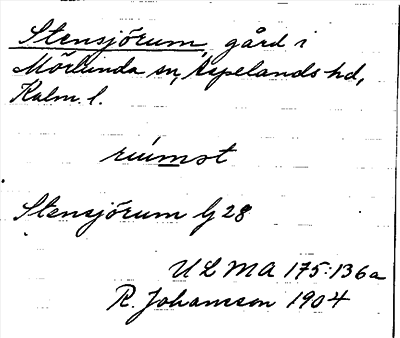 Stensjörum, gård i
Mörlunda sn, Aspelands hd,
Kalm. l.
riúmst
Stensjörum G 28
ULMA 175:136a
R. Johansson 1904